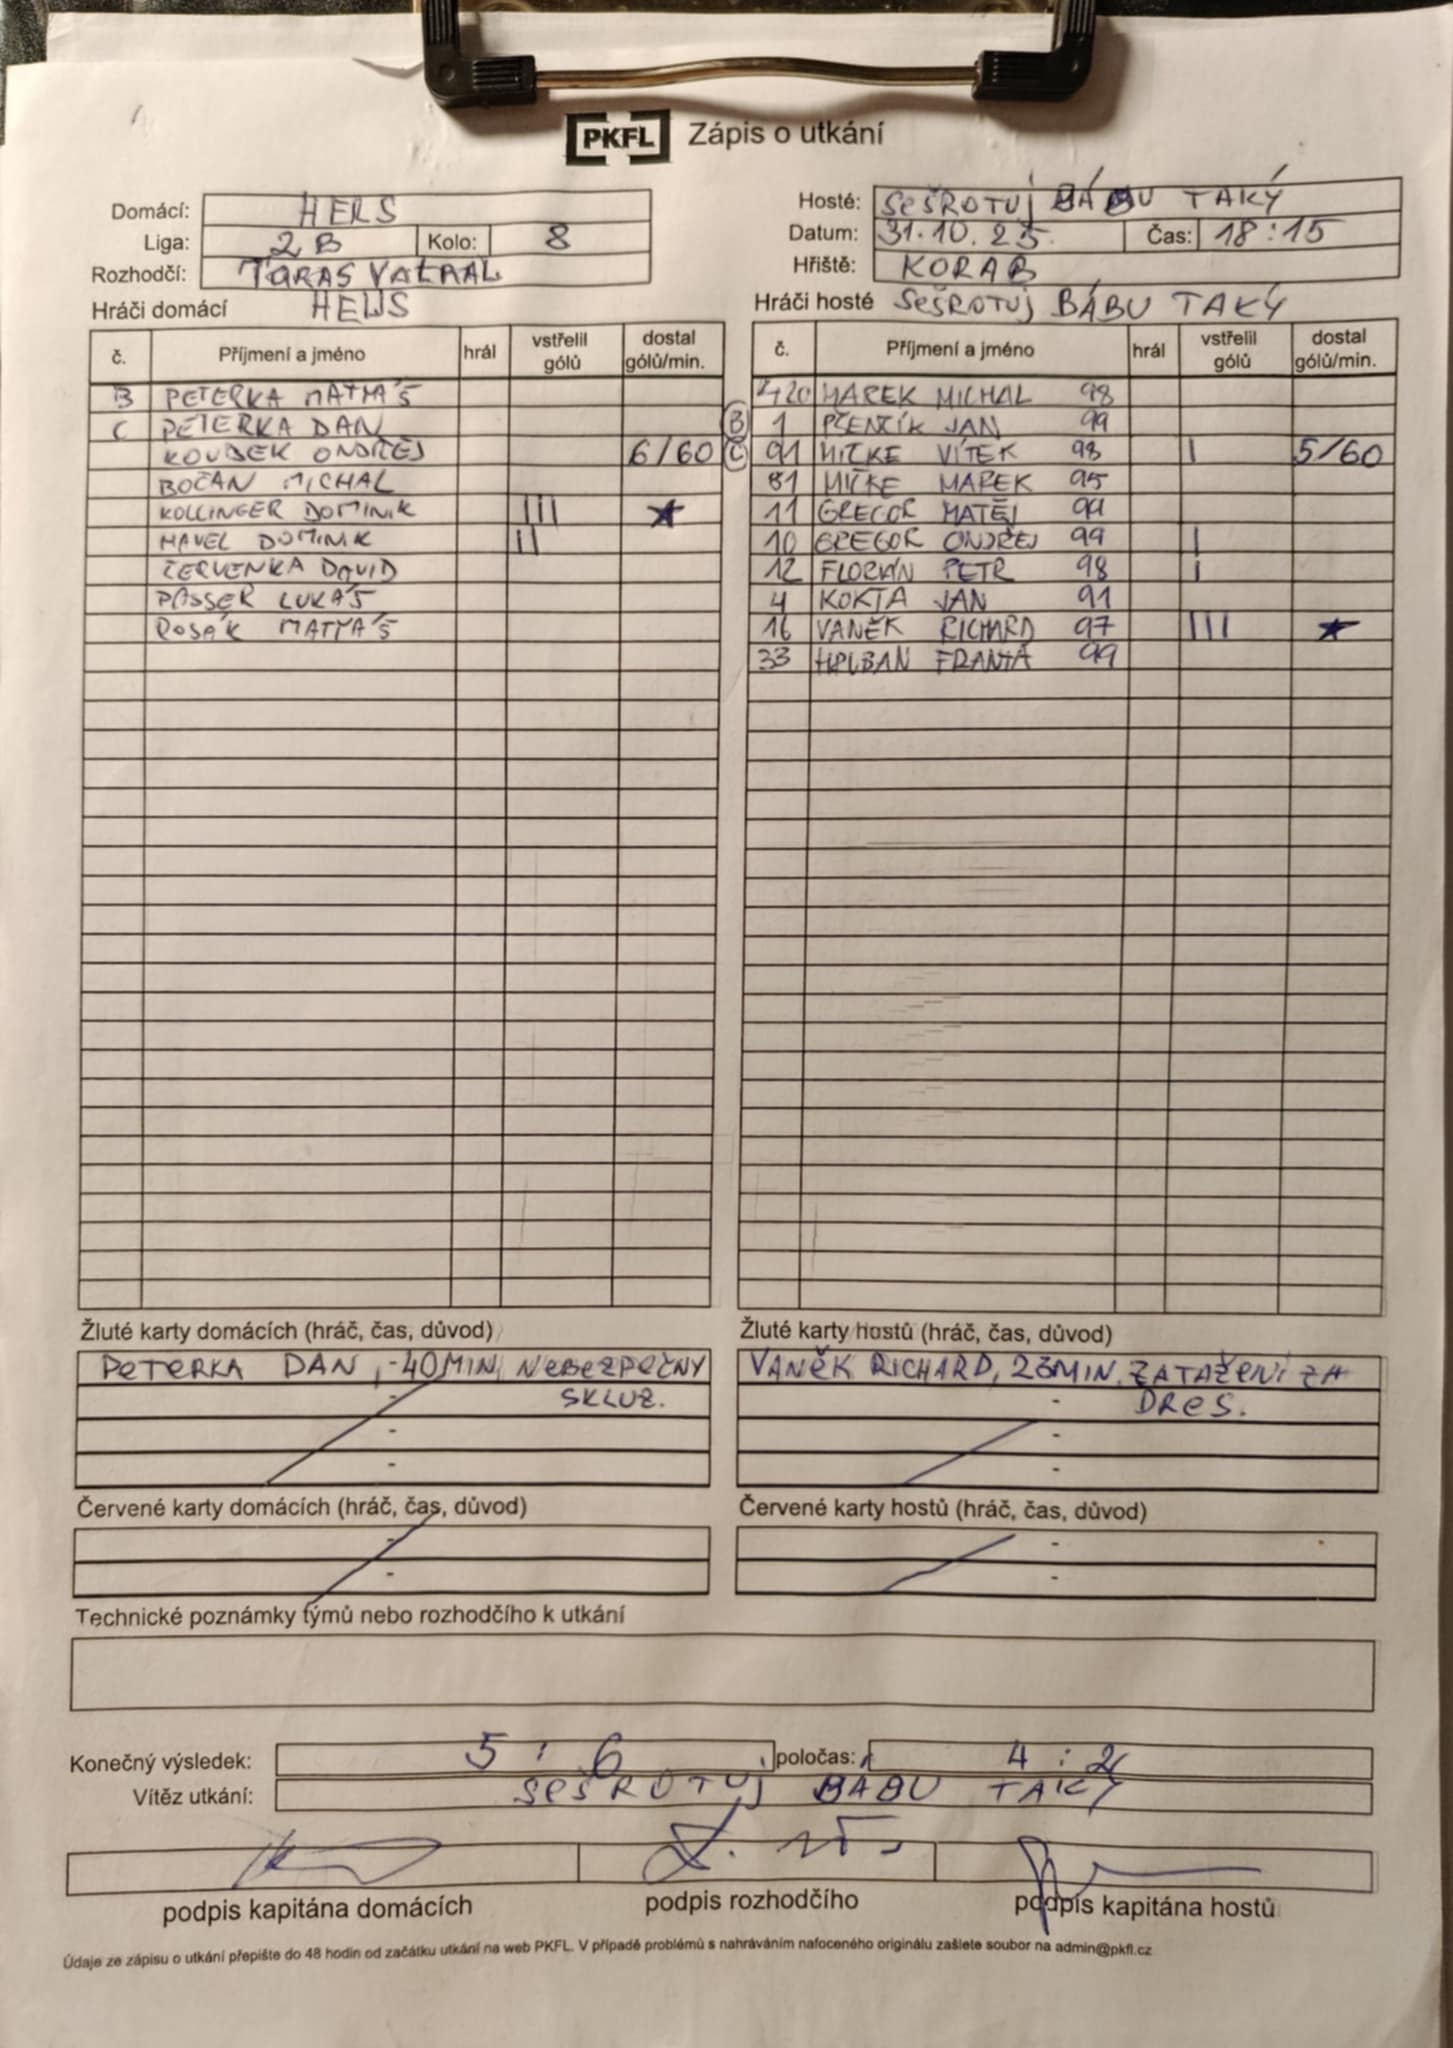 PKFL Zápis o utkání
Domácí: HERS
Hosté: SEŠROTUJ BÁBU TAKÝ
Liga: 2B Kolo: 8
Datum: 31.10.25. Čas: 18:15
Rozhodčí: TARAS
Hřiště: KORAB
Hráči domácí
Hráči hosté SEŠROTUJ BÁBU TAKÝ
č. Příjmení a jméno hrál vstřelil gólů dostal gólů/min.
B PETERKA MATYÁŠ
C PETERKA DAN
KOUDEK ONDŘEJ 6/60
BOČAN MICHAL
KOLLINGER DOMINIK III ★
HAVEL DOMINIK II
ČERVENKA DAVID
PASSER LUKÁŠ
ROSÁK MATYÁŠ
č. Příjmení a jméno hrál vstřelil gólů dostal gólů/min.
420 MAREK MICHAL 98
B 1 JAN 99
C 91 MIČKE VÍTEK 98 I 5/60
81 MIČKE MAREK 95
11 GREGOR MATĚJ
10 GREGOR ONDŘEJ 99 I
12 FLORIÁN PETR 98 I
4 KOKTA JAN 91
16 VANĚK RICHARD 97 III ★
33 FRANTA 99
Žluté karty domácích (hráč, čas, důvod)
PETERKA DAN, - 40MIN, NEBEZPEČNÝ
- SKLUZ.
-
-
Žluté karty hostů (hráč, čas, důvod)
VANĚK RICHARD, 23MIN, ZATAŽENÍ ZA
- DRES.
-
-
Červené karty domácích (hráč, čas, důvod)
-
-
Červené karty hostů (hráč, čas, důvod)
-
-
Technické poznámky týmů nebo rozhodčího k utkání
Konečný výsledek: 5 : 6 poločas: 4 : 2
Vítěz utkání: SEŠROTUJ BÁBU TAKÝ
podpis kapitána domácích podpis rozhodčího podpis kapitána hostů
Údaje ze zápisu o utkání přepište do 48 hodin od začátku utkání na web PKFL. V případě problémů s nahráváním nafoceného originálu zašlete soubor na admin@pkfl.cz